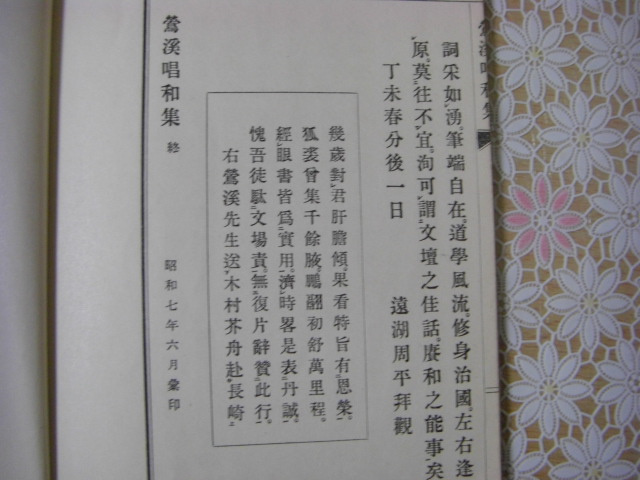 鶯溪唱和集
詞采如湧。筆端自在。道學風流。修身治國。左右逢
原。莫往不宜。洵可謂文壇之佳話。賡和之能事矣
丁未春分後一日
遠湖周平拜觀
幾歲對君肝膽傾。果看特旨有恩榮。
狐裘曾集千餘腋。鵬翮初舒萬里程。
經眼書皆爲實用。濟時畧是表丹誠。
愧吾徒馱文場責。無復片辭贊此行。
右鶯溪先生送木村芥舟赴長崎
鶯溪唱和集 終
昭和七年六月彙印